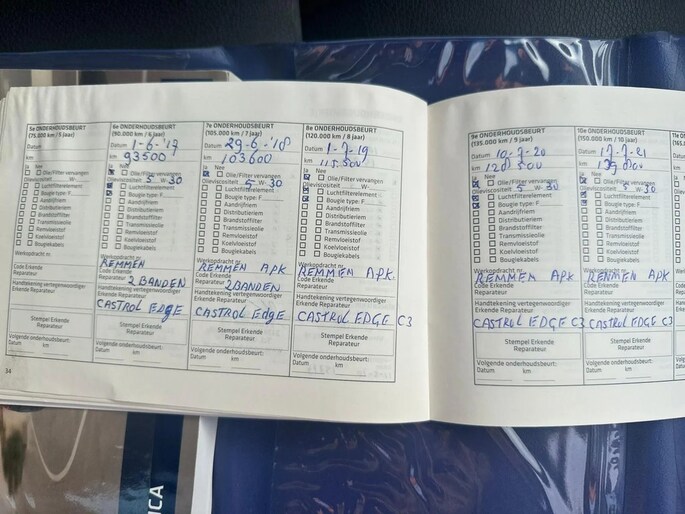 5e ONDERHOUDSBEURT
(75.000 km / 5 jaar)
Datum
km
Ja Nee
Olie/Filter vervangen
Olieviscositeit W-
Luchtfilterelement
Bougie type: F
Aandrijfriem
Distributieriem
Brandstoffilter
Transmissieolie
Remvloeistof
Koelvloeistof
Bougiekabels
Werkopdracht nr.
Code Erkende
Reparateur
Handtekening vertegenwoordiger
Erkende Reparateur
Stempel Erkende
Reparateur
Volgende onderhoudsbeurt:
Datum km
34
6e ONDERHOUDSBEURT
(90.000 km / 6 jaar)
Datum 1-6-'17
km 93500
Ja Nee
Olie/Filter vervangen
Olieviscositeit 5 W- 30
Luchtfilterelement
Bougie type: F
Aandrijfriem
Distributieriem
Brandstoffilter
Transmissieolie
Remvloeistof
Koelvloeistof
Bougiekabels
Werkopdracht nr.
REMMEN
Code Erkende
Reparateur 2 BANDEN
Handtekening vertegenwoordiger
Erkende Reparateur
CASTROL EDGE
Stempel Erkende
Reparateur
Volgende onderhoudsbeurt:
Datum km
7e ONDERHOUDSBEURT
(105.000 km / 7 jaar)
Datum 29-6-'18
km 103600
Ja Nee
Olie/Filter vervangen
Olieviscositeit 5 W- 30
Luchtfilterelement
Bougie type: F
Aandrijfriem
Distributieriem
Brandstoffilter
Transmissieolie
Remvloeistof
Koelvloeistof
Bougiekabels
Werkopdracht nr.
REMMEN APK
Code Erkende
Reparateur 2BANDEN
Handtekening vertegenwoordiger
Erkende Reparateur
CASTROL EDGE
Stempel Erkende
Reparateur
Volgende onderhoudsbeurt:
Datum km
8e ONDERHOUDSBEURT
(120.000 km / 8 jaar)
Datum 1-7-19
km 115.500
Ja Nee
Olie/Filter vervangen
Olieviscositeit W-
Luchtfilterelement
Bougie type: F
Aandrijfriem
Distributieriem
Brandstoffilter
Transmissieolie
Remvloeistof
Koelvloeistof
Bougiekabels
Werkopdracht nr.
REMMEN APK.
Code Erkende
Reparateur
Handtekening vertegenwoordiger
Erkende Reparateur
CASTROL EDGE C3
Stempel Erkende
Reparateur
Volgende onderhoudsbeurt:
Datum km
9e ONDERHOUDSBEURT
(135.000 km / 9 jaar)
Datum 10-7-20
km 128 500
Ja Nee
Olie/Filter vervangen
Olieviscositeit 5 W- 30
Luchtfilterelement
Bougie type: F
Aandrijfriem
Distributieriem
Brandstoffilter
Transmissieolie
Remvloeistof
Koelvloeistof
Bougiekabels
Werkopdracht nr.
REMMEN APK
Code Erkende
Reparateur
Handtekening vertegenwoordiger
Erkende Reparateur
CASTROL EDGE C3
Stempel Erkende
Reparateur
Volgende onderhoudsbeurt:
Datum km
10e ONDERHOUDSBEURT
(150.000 km / 10 jaar)
Datum 17-7-21
km
Ja Nee
Olie/Filter vervangen
Olieviscositeit 5 W- 30
Luchtfilterelement
Bougie type: F
Aandrijfriem
Distributieriem
Brandstoffilter
Transmissieolie
Remvloeistof
Koelvloeistof
Bougiekabels
Werkopdracht nr.
REMMEN APK
Code Erkende
Reparateur
Handtekening vertegenwoordiger
Erkende Reparateur
CASTROL EDGE C3
Stempel Erkende
Reparateur
Volgende onderhoudsbeurt:
Datum km
11e
(165.
Datum
km
ICA